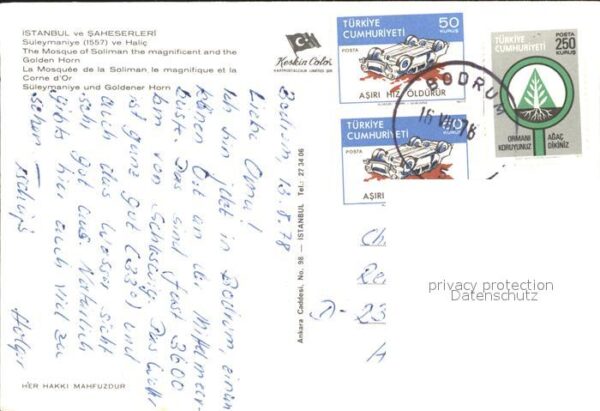 İSTANBUL ve ŞAHESERLERİ
Süleymaniye (1557) ve Haliç
The Mosque of Soliman the magnificent and the
Golden Horn
La Mosquée de la Soliman le magnifique et la
Corne d'Or
Süleymaniye und Goldener Horn
Keskin Color
KARTPOSTALCILIK LIMITED ŞİR.
Ankara Caddesi, No. 98 — İSTANBUL Tel.: 27 34 06
HER HAKKI MAHFUZDUR
TÜRKİYE
CUMHURİYETİ
50
KURUŞ
POSTA
AŞIRI HIZ ÖLDÜRÜR
TÜRKİYE
CUMHURİYETİ
50
KURUŞ
POSTA
AŞIRI
TÜRKİYE
CUMHURİYETİ
POSTA
250
KURUŞ
ORMANI
KORUYUNUZ
AĞAÇ
DİKİNİZ
BODRUM
16 VIII 78
Bodrum, 13.8.78
Liebe Oma!
Ich bin jetzt in Bodrum, einem
kleinen Ort an der Mittelmeer-
küste. Das sind fast 3600
km von Schleswig. Das Wetter
ist ganz gut (33°) und
auch das Wasser sieht
sehr gut aus. Natürlich
gibt's hier auch viel zu
sehen.
Tschüs
Holger
D-23
privacy protection
Datenschutz